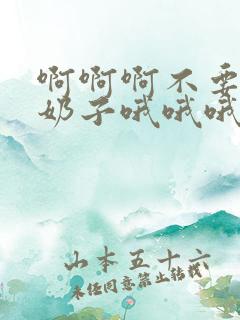 啊啊啊不要
奶子哦哦哦
山本五十六
未经同意禁止转载